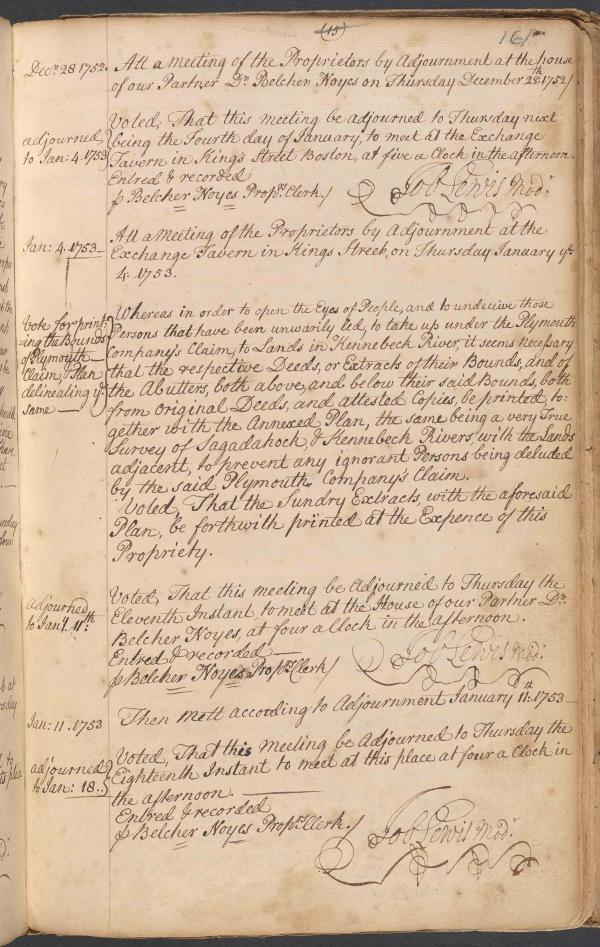 (15)
161
Decr. 28 1752.
Att a meeting of the Proprietors by Adjournment at the house
of our Partner Dr. Belcher Noyes on Thursday December 28th: 1752/
adjourned
to Jan: 4. 1753
Voted, That this meeting be adjourned to Thursday next
being the Fourth day of January, to meet at the Exchange
Tavern in Kings Street Boston, at five a Clock in the afternoon.
Entred & recorded
p Belcher Noyes Proprs. Clerk./
Job Lewis Modr.
Jan: 4. 1753
Att a Meeting of the Proprietors by Adjournment at the
Exchange Tavern in Kings Street, on Thursday January ye.
4: 1753.
Vote for print-
-ing the Bounds
of Plymouth
Claim, & Plan
delineating ye.
same
Whereas in order to open the Eyes of People, and to undecive those
Persons that have been unwarily led, to take up under the Plymouth
Company's Claim, to Lands in Kennebeck River, it seems necessary
that the respective Deeds, or Extracts of their Bounds, and of
the Abutters, both above, and below their said Bounds, both
from original Deeds, and attested Copies, be printed, to-
gether with the Annexed Plan, the same being a very True
Survey of Sagadahock, & Kennebeck Rivers, with the Lands
adjacent, to prevent any ignorant Persons being deluded
by the said Plymouth Company's Claim.
Voted, That the Sundry Extracts, with the aforesaid
Plan, be forthwith printed at the Expence of this
Propriety.
Adjourned
to Jany. 11th.
Voted, That this meeting be Adjourned to Thursday the
Eleventh Instant to meet at the House of our Partner Dr.
Belcher Noyes, at four a Clock in the afternoon.
Entred & recorded
p Belcher Noyes Proprs. Clerk/
Job Lewis Modr.
Jan: 11. 1753
Then mett according to Adjournment January 11th: 1753
adjourned
to Jan: 18..
Voted, That this meeting be Adjourned to Thursday the
Eighteenth Instant to meet at this place at four a Clock in
the afternoon.
Entred & recorded
p Belcher Noyes Proprs. Clerk./
Job Lewis Modr.